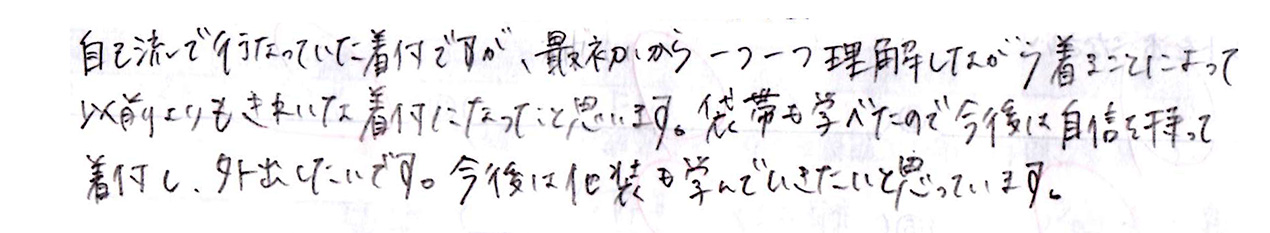 自己流で行なっていた着付ですが、最初から一つ一つ理解しながら着ることによって
以前よりもきれいな着付になったと思います。袋帯も学べたので今後は自信を持って
着付し、外出したいです。今後は他装も学んでいきたいと思っています。